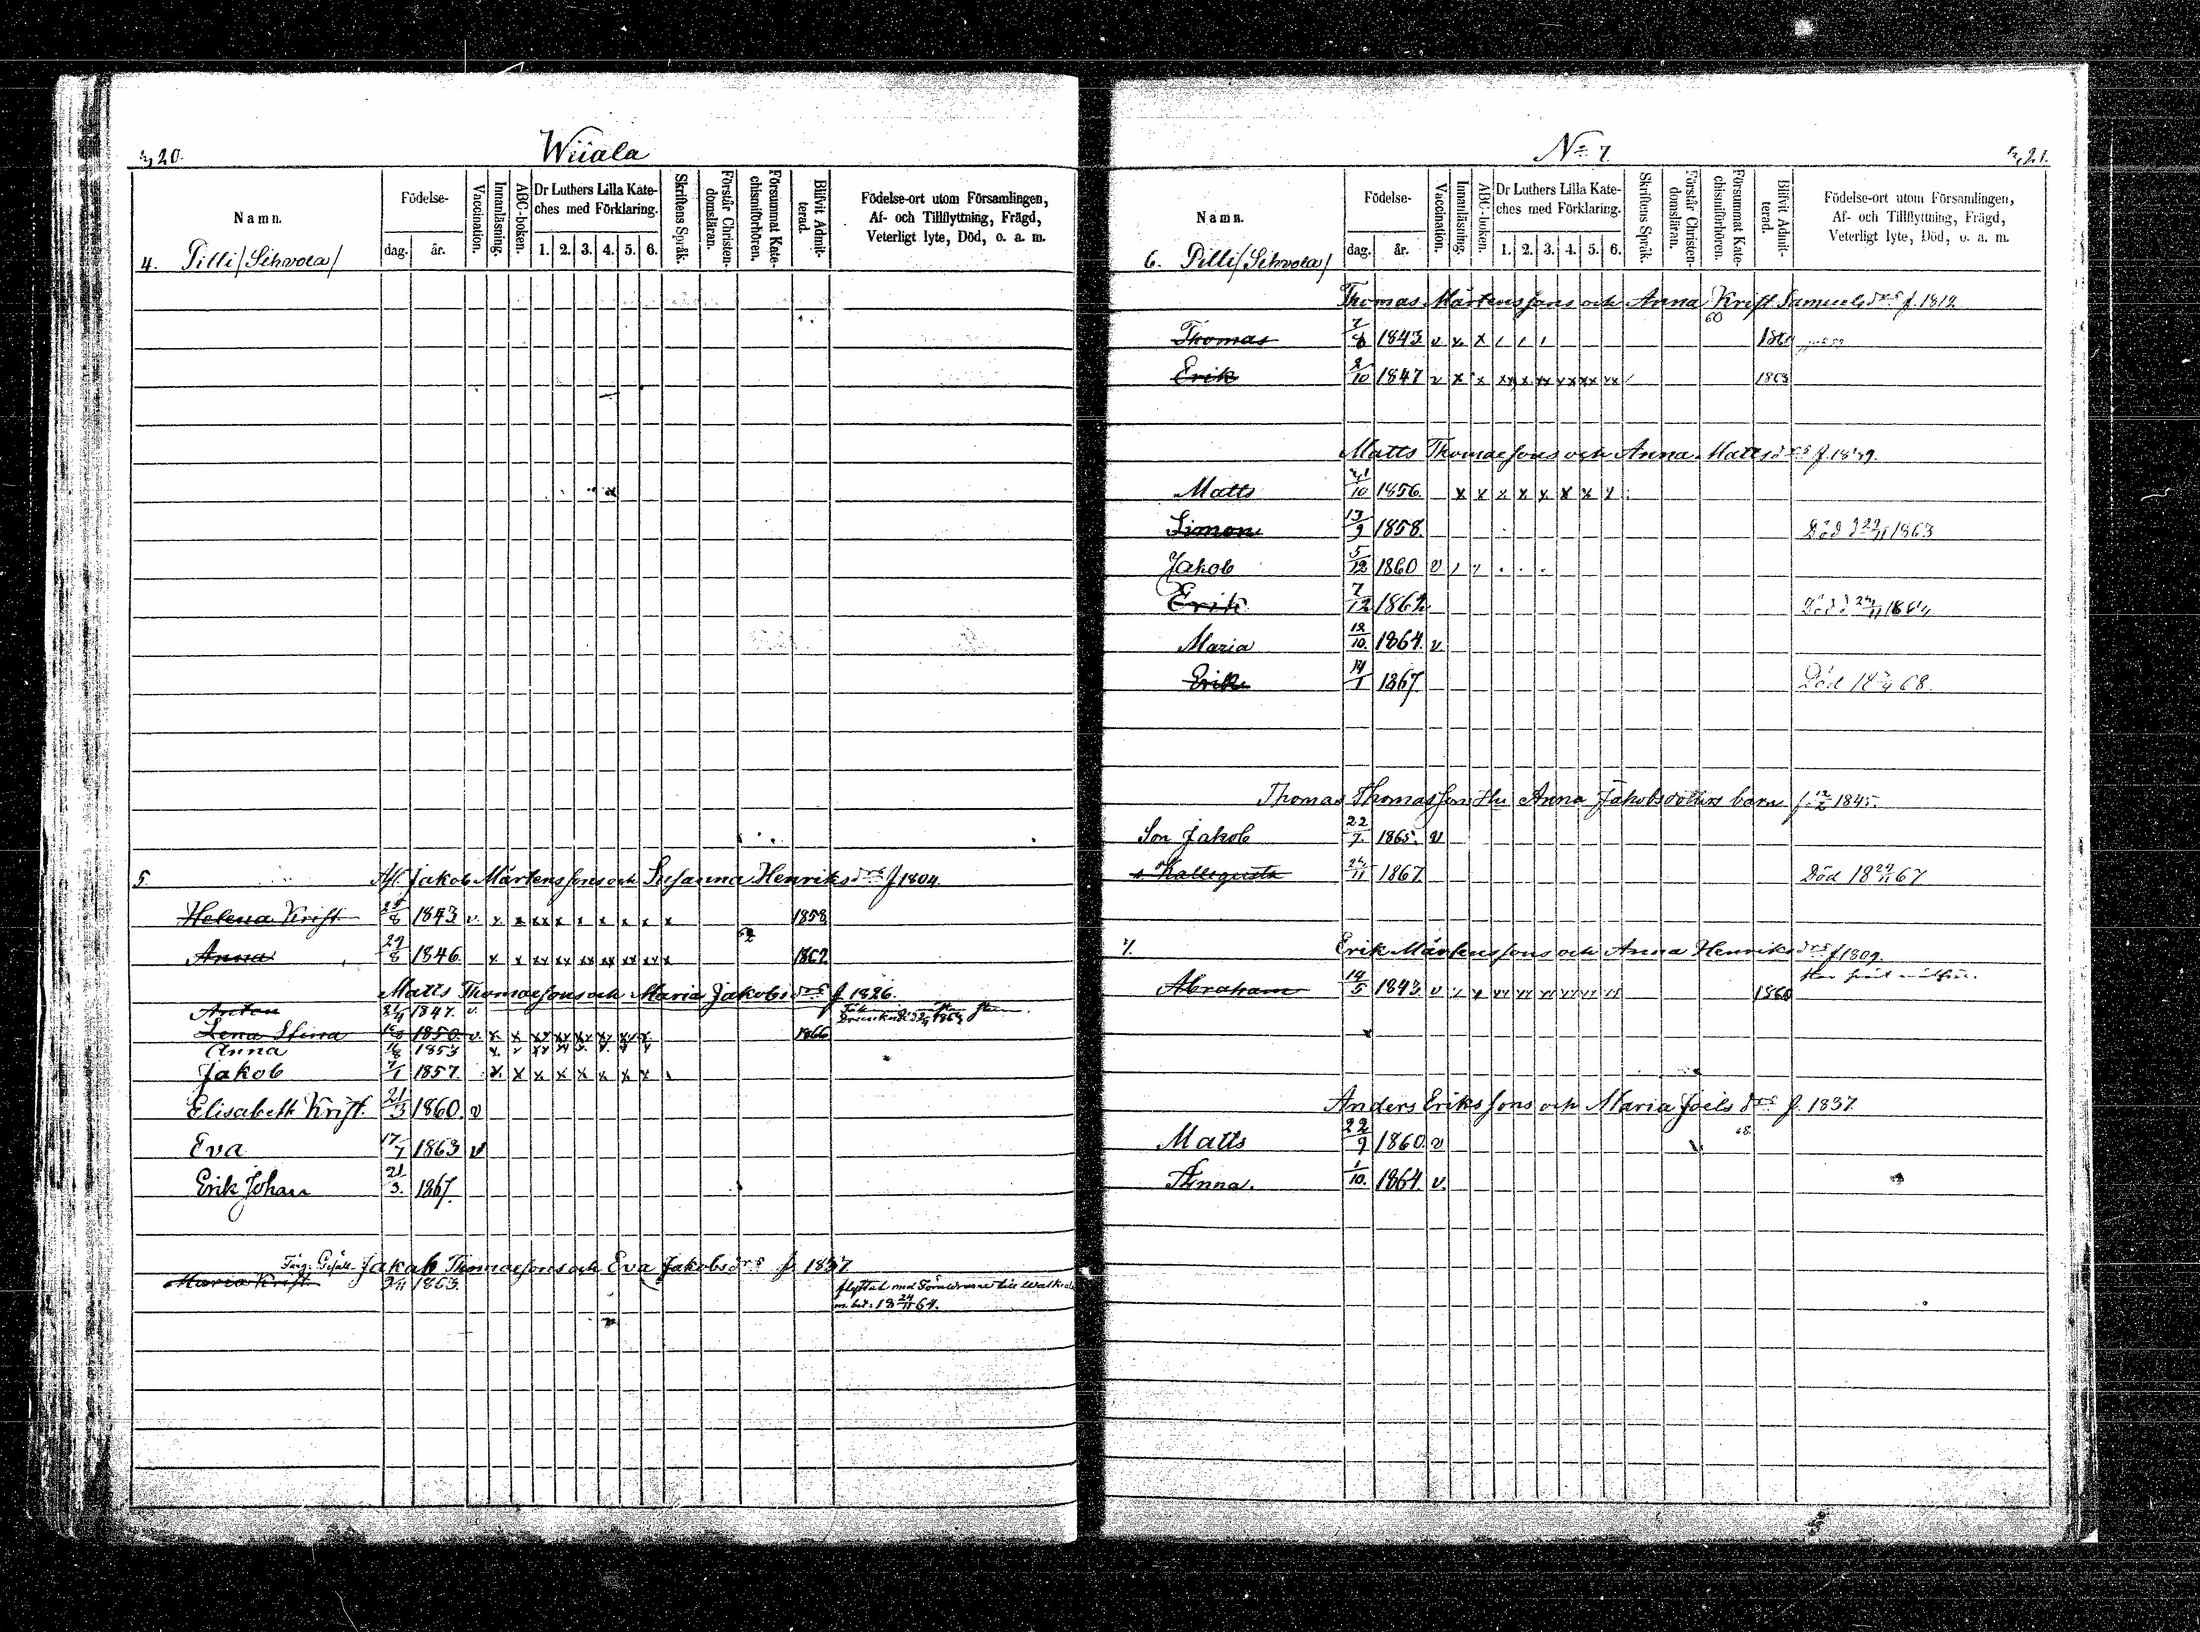 420.
Wiiala
Namn.
Födelse-
dag.
år.
Vaccination.
Innanläsning.
ABC-boken.
Dr Luthers Lilla Kate-
ches med Förklaring.
1. 2. 3. 4. 5. 6.
Skriftens Språk.
Förstår Christen-
domsläran.
Försummat Kate-
chismiförhören.
Blifvit Admit-
terad.
Födelse-ort utom Församlingen,
Af- och Tillflyttning, Frägd,
Veterligt lyte, Död, o. a. m.
4. Pilli/Sihvola/
5. Afl. Jakob Mårtenssons och Susanna Henriksdrs f 1804.
Helena Krist. 1843 v x x xx x x x x x x 1858
Anna 29/8 1846 x x xx xx xx xx xx xx x 1862
Matts Thomassons och Maria Jakobsdrs f 1826.
Anton 21/4 1847. v
Lena Stina 1850. v x x 1866
Anna 1853
Jakob 1857. x x x x x x x x
Elisabeth Krist. 21/3 1860. v
Eva 17/7 1863 v
Erik Johan 21/3. 1867.
Jakob Thomassons och Eva Jakobsdrs f 1837
Maria Krist. 1863.
flyttat med Föräldrarne till
m. bet. 18 24/11 64.
No 7
421.
Namn.
Födelse-
dag.
år.
Vaccination.
Innanläsning.
ABC-boken.
Dr Luthers Lilla Kate-
ches med Förklaring.
1. 2. 3. 4. 5. 6.
Skriftens Språk.
Förstår Christen-
domsläran.
Försummat Kate-
chismiförhören.
Blifvit Admit-
terad.
Födelse-ort utom Församlingen,
Af- och Tillflyttning, Frägd,
Veterligt lyte, Död, o. a. m.
6. Pilli/Sihvola/
Thomas Mårtenssons och Anna Krist. Samuelsdrs f. 1812
60
Thomas 1843 v x x
Erik 2/10 1847 v x x xx x xx xx xx xx 1863
Matts Thomassons och Anna Mattsdrs f. 1839.
Matts 1856. x x x x x x x x
Simon 13/9 1858. Död d 29/11 1863
Jakob 5/12 1860 v
Erik 7/12 1862 Död d 1864
Maria 12/10. 1864. v
Erik 14/1 1867. Död 68
Thomas Thomasson Hu Anna Jakobsdotters barn f. 12/2 1845.
Son Jakob 22/7. 1865. v
s Kallegusta 1867. Död 18 29/11 67
7. Erik Mårtenssons och Anna Henriksdrs f 1809.
Abraham 14/5 1843 v 1860
Anders Erikssons och Maria Joelsdrs f. 1837.
68
Matts 22/9 1860. v
Anna. 1/10. 1864. v.